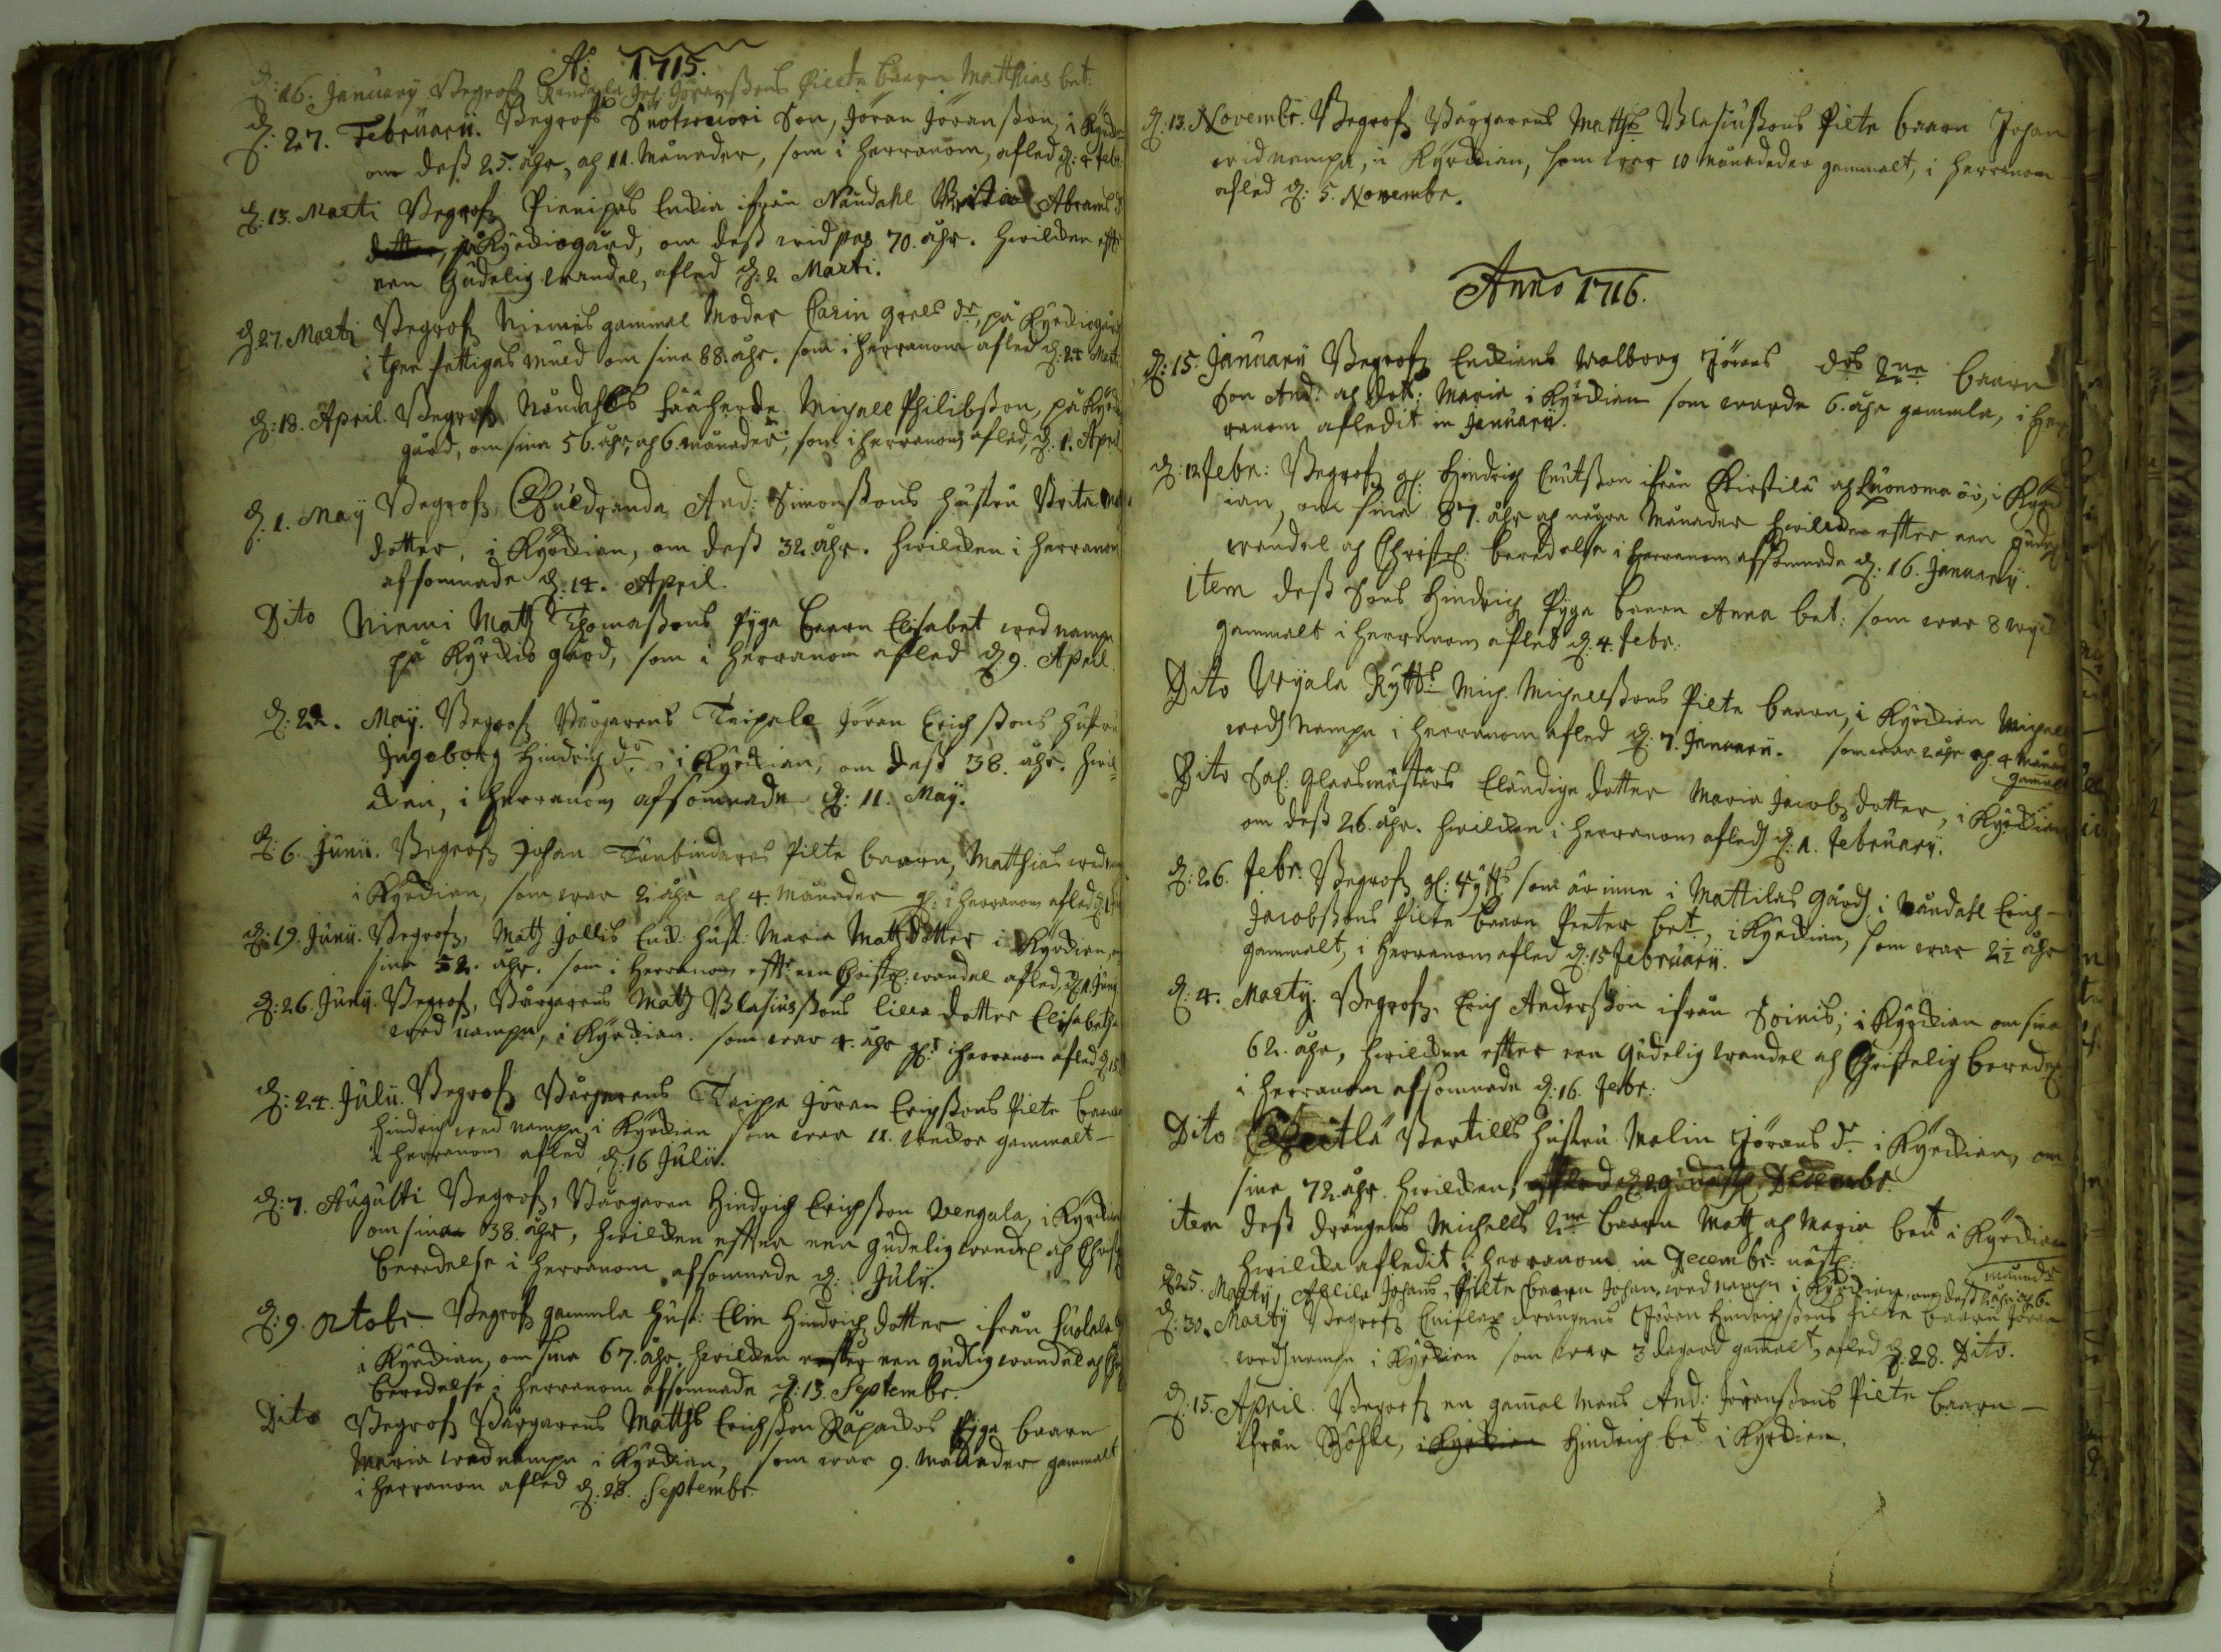 Aº 1715.
d: 16. January Begrofs Jöranßons Pielte baarn Matthias bet:
d: 27. Februarii. Begrofs Son, Jöran Jöranßon, i Kyrkian
om deß 25. åhr, ah 11. Månader, som i herranom, afled d: 4 feb:
d: 13. Marti Begrofs Enkia ifrån Nåndahl Abrams
på Kyrkiogård, om deß widpas 70. åhr. hwilken efft
een Gudelig wandel, afled d: 2 Marti.
d. 27. Marti Begrofs Niemis gammal Moder Carin Grels dr, på Kyrkiogård
i then fattigas muld om sine 88. åhr. som i herranom afled d: 24 Mart:
d: 18. April. Begrofs Nåndahls fååherde Michell Philibßon, på Kyrkio
gård, om sine 56. åhr, ah 6. månader, som i herranom afled, d. 1. April
d. 1. May Begrofs And: Simonßons hustru Brita
dotter, i Kyrkian, om deß 32. åhr. hwilken i herranom
afsomnade d. 14. April.
Dito Niemi Matz Thomaßons Pyga baarn Elisabet wed nampn
på Kyrkio gård, som i herranom afled d 9. April.
d: 22. May. Begrofs Borgarens Taipale Jöran Erichßons hustru
Ingeborg Hindrich dr, i Kyrkian, om deß 38. åhr. hwil-
cken, i herranom afsomnade d: 11. May.
d: 6 Junii. Begrofs Johan Tunbindares Pilte baarn, Matthias wed
i Kyrkian, som war 2 åhr ah 4. Månader gl: i herranom afled
d: 19. Junii. Begrofs, Matz Jollis Enk: hust: Maria Matzdotter i Kyrkian,
sine 52. åhr. som i herranom efftr een Christl: wandel afled, d. 1. Juny
d: 26. Juny. Begrofs, Borgarens Matz Blasiusßons lilla dotter Elisabetha
wed nampn, i Kyrkian. som war 4. åhr gl: i herranom afled d. 15
d: 24. Julii. Begrofs Borgarens Taipa Jöran Erichßons Pilte baarn
Hindrich wed nampn i Kyrkian som war 11. weckor gammalt -
i herranom afled d: 16 Julii.
d: 7. Augusti Begrofs, Borgaren Hindrich Erichßon Vengala, i Kyrkian
om sine 38. åhr, hwilken effter een gudelig wandel ah Christ
beredelse i herranom afsomnade d: July.
d: 9. octobr Begrofs gamla hust: Elin Hindrich dotter ifrån
i Kyrkian, om sine 67. åhr. hwilken effter een gudlig wandel ah
beredelse i herranom afsomnade d: 13. Septembr.
Dito Begrofs Borgarens Matths Erichßon Råpackos Pyga baarn
Maria wed nampn i Kyrkian, som war 9. Månader gammalt
i herranom afled d: 28. Septembr.
d: 13. Novembr. Begrofs Borgarens Matths Blasiusßons Pilte baarn Johan
wid nampn, i Kyrkian, som war 10 månadeder gammalt, i herranom
afled d: 5. Novembr.
Anno 1716.
d: 15. January Begrofs Enkians Walborg Jörans drs 2ne baarn
Son And: ah dotr: Maria i Kyrkian som warde 6. åhr gamla, i her
ranom afledit in Januarii.
d: 12 febr: Begrofs gl: Hindrich Cnutßon ifrån Kirstilä ah Luonoma öö, i Kyrk
ian, om sine 87. åhr ah någre Månader hwilcken effter een gudel
wandel ah Christl: beredelse i herranom afsomnade d: 16. January.
item deß Sons Hindrich Pyga baarn Anna bet: som war 8 wec
gammalt i herranom afled d. 4. febr:
Dito Wyala Rytts Mich. Michellßons Pilte baarn, i Kyrkian Michel
wed nampn i herranom afled d. 7. Januarii. som war 2 åhr ah 4 månad
gamalt
Dito Sal: Glaasmästars Eländige dotter Maria Jacobs dotter, i Kyrkian
om deß 26. åhr. hwilken i herranom afled d. 1. February.
d: 26. Febr. Begrofs gl: som är inne i Mattilas Gård, i Nåndahl Erich -
Jacobßons Pilte baarn Peeter bet, i Kyrkian, som war 2½ åhr
gammalt, i herranom afled d: 15 Februarii.
d: 4. Marty. Begrofs, Erich Anderßon ifrån Soinis, i Kyrkian om sine
62. åhr, hwilcken effter een Gudelig wandel ah Christelig beredel
i herranom afsomnade d: 16. Febr:
Dito Bertills hustru Malin Jörans dr i Kyrkian, om
sine 72. åhr. hwilcken, afled d: 29. Decembr.
item deß drängens Michells 2ne baarn Matz ah Maria bett i Kyrkian
hwilcka afledit i herranom in Decembr. nästl:
d: 25. Marty, Ahlila Johans, Pilte baarn Johan wed nampn i Kyrkian, om deß 2 åhr ah 6.
månadr
d: 30. Marty Begrofs drängens Jöran Hindrichßons Pilte baarn Jöran
wed nampn i Kyrkian som war 3 dagar gamalt, afled d: 28. Dito.
d: 15. April. Begrofs en gamal Mans And: Jöranßons Pilte baarn -
ifrån i Kyrkian Hindrich bet i Kyrkian.